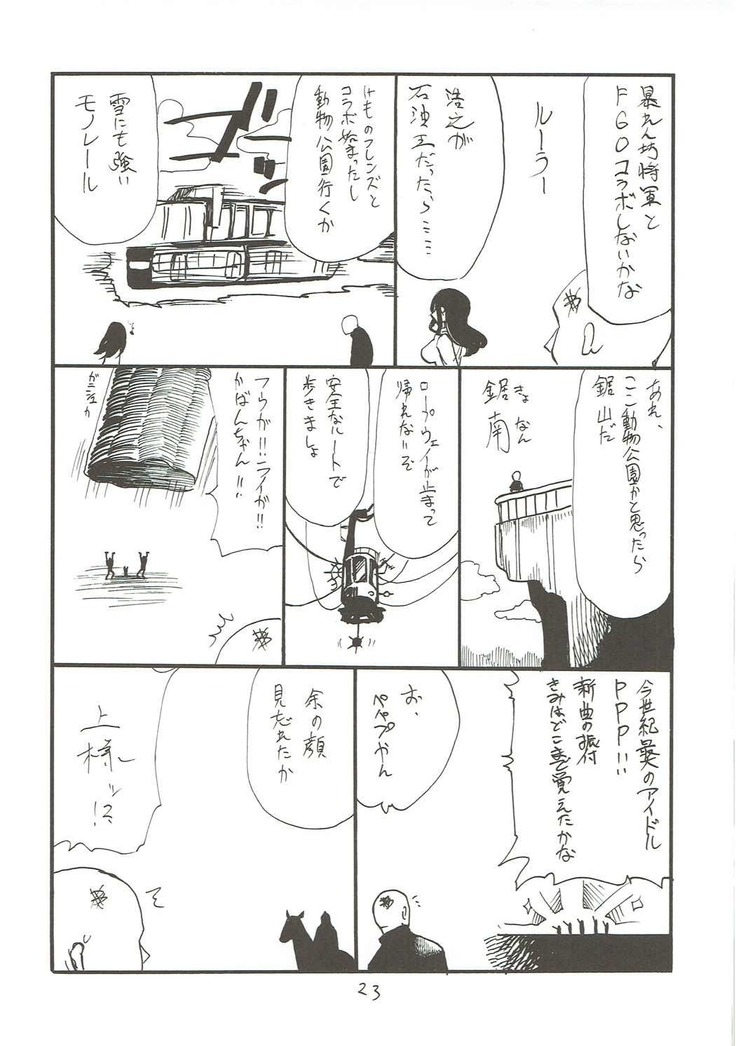 暴れん坊将軍と
FGOコラボしないかな
ルーラー
浩之が
石油王だったら……
けものフレンズと
コラボ始まったし
動物公園行くか
ゴゴゴ
雪にも強い
モノレール
あれ、
ここ動物公園かと思ったら
鋸山だ
きょなん
鋸南
ロープウェイが止まって
帰れないぞ
安全なルートで
歩きましょ
フウが!!ライが!!
かばんちゃん!!!
今世紀最大のアイドル
PPP!!!
新曲の振付
きみはどこまで覚えたかな
お、
ペパプやん
余の顔
見忘れたか
上様ッ!?
23